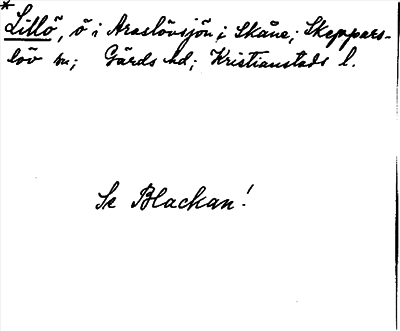 *
Lillö, ö i Araslövsjön, i Skåne; Skeppars-
löv sn; Gärds hd; Kristianstads l.
Se Blackan!